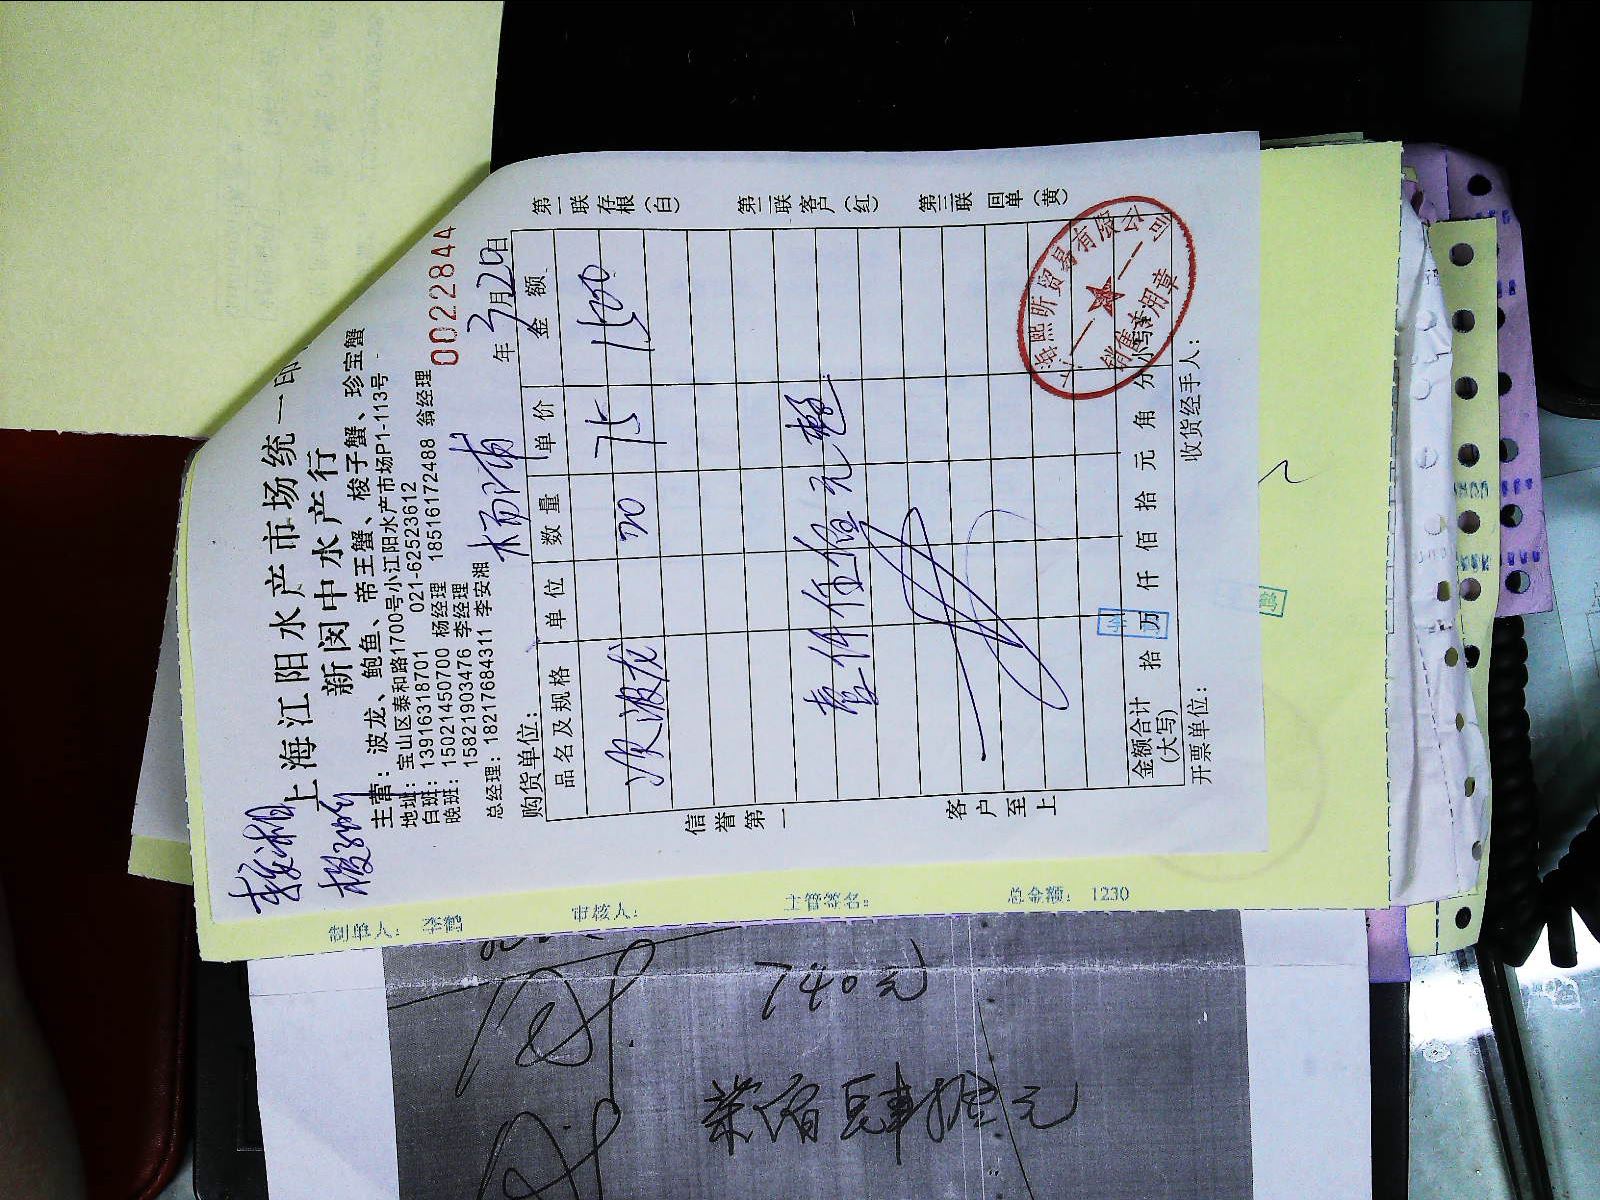 上海江阳水产市场统一印
新闵中水产行
主营：波龙、鲍鱼、帝王蟹、梭子蟹、珍宝蟹
地址：宝山区泰和路1700号小江阳水产市场P1-113号
白班：13916318701 021-62523612
晚班：15021450700 杨经理 18516172488 翁经理
15821903476 李经理
总经理：18217684311 李安湘
0022844
购货单位： 杨浦 年 3月20日
品名及规格 单位 数量 单价 金额
次波龙 20 75 1500
壹仟伍佰元整
金额合计(大写) 拾 万 仟 佰 拾 元 角 分 小写￥
开票单位： 收货经手人：
第一联存根（白） 第二联客户（红） 第三联回单（黄）
信誉第一 客户至上
上海熙昕贸易有限公司
销售专用章
审核人： 总金额： 1230
740元
柒佰肆拾元